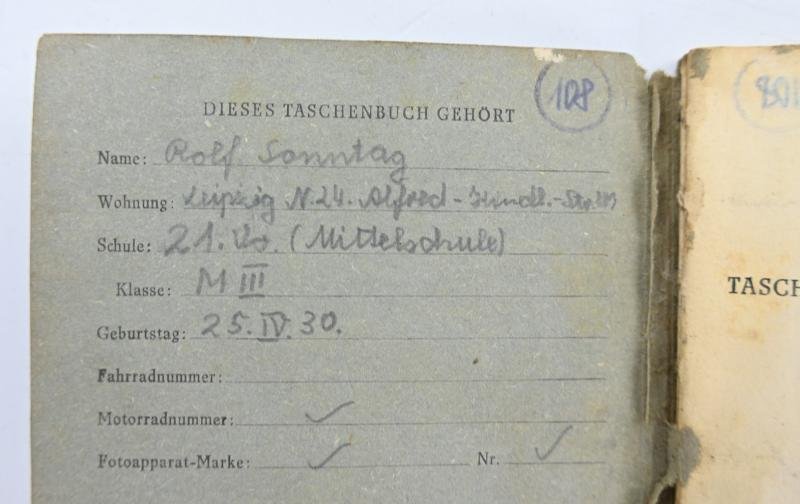 108
DIESES TASCHENBUCH GEHÖRT
Name: Rolf Sonntag
Wohnung: Leipzig N.24. Alfred-
Schule: 21. Vs. (Mittelschule)
Klasse: M III
Geburtstag: 25. IV. 30.
Fahrradnummer:
Motorradnummer: ✓
Fotoapparat-Marke: ✓ Nr. ✓
TASCH